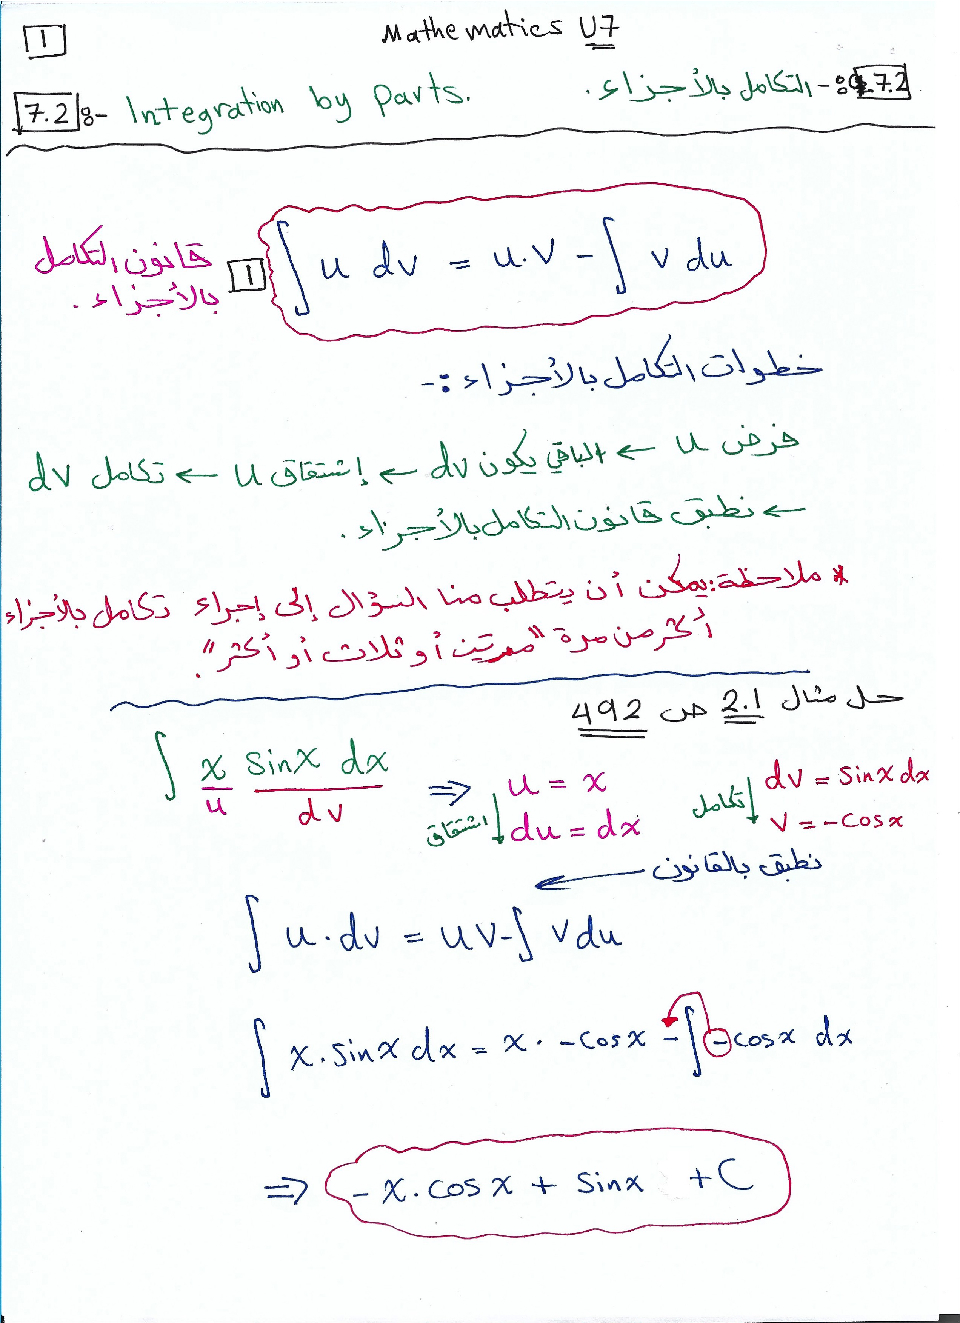 1
Mathematics U7
7.2 :- Integration by parts.
7.2 :- التكامل بالأجزاء.
قانون التكامل
بالأجزاء.
1 ∫ u dv = u.v - ∫ v du
خطوات التكامل بالأجزاء :-
فرض u ← الباقي يكون dv ← إشتقاق u ← تكامل dv
← نطبق قانون التكامل بالأجزاء.
* ملاحظة: يمكن أن يتطلب منا السؤال إلى إجراء تكامل بالأجزاء
أكثر من مرة "مرتين أو ثلاث أو أكثر".
حل مثال 2.1 ص 492
∫ x sinx dx
u dv
⇒ u = x
اشتقاق ↓ du = dx
تكامل ↓ dv = sinx dx
v = -cosx
نطبق بالقانون ←
∫ u.dv = uv - ∫ vdu
∫ x.sinx dx = x. -cosx - ∫ -cosx dx
⇒ -x.cosx + sinx +C